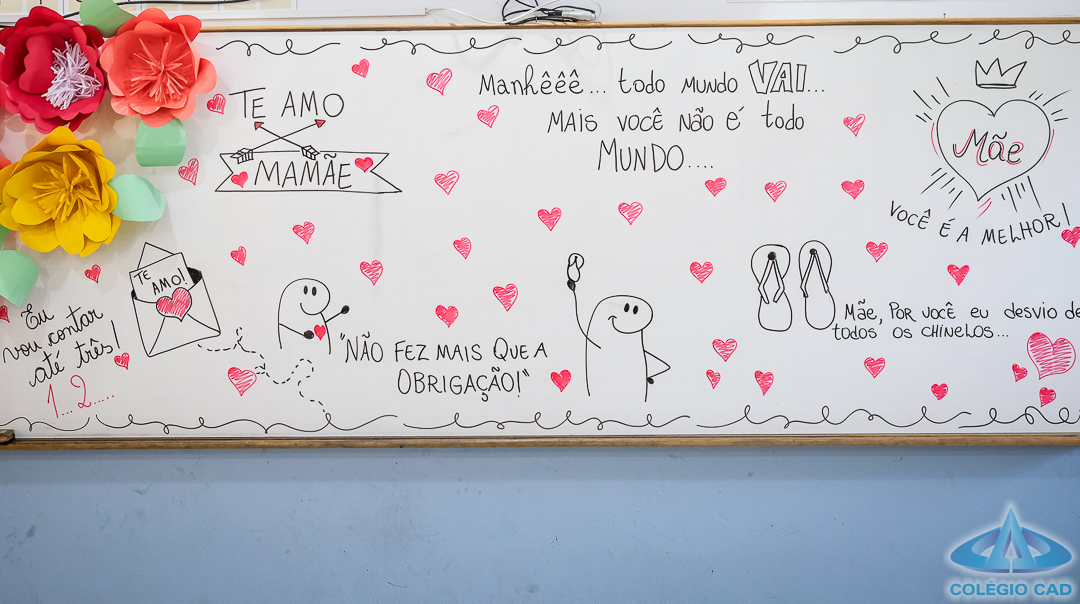 TE AMO
MAMÃE
Manhêêê... todo mundo VAI...
MAIS VOCÊ NÃO É todo
MUNDO....
Mãe
VOCÊ É A MELHOR!
TE
AMO!
Eu
vou contar
até três!
1...2.....
"NÃO FEZ MAIS QUE A
OBRIGAÇÃO!"
Mãe, POR VOCÊ eu desvio de
todos os chinelos...
COLÉGIO CAD